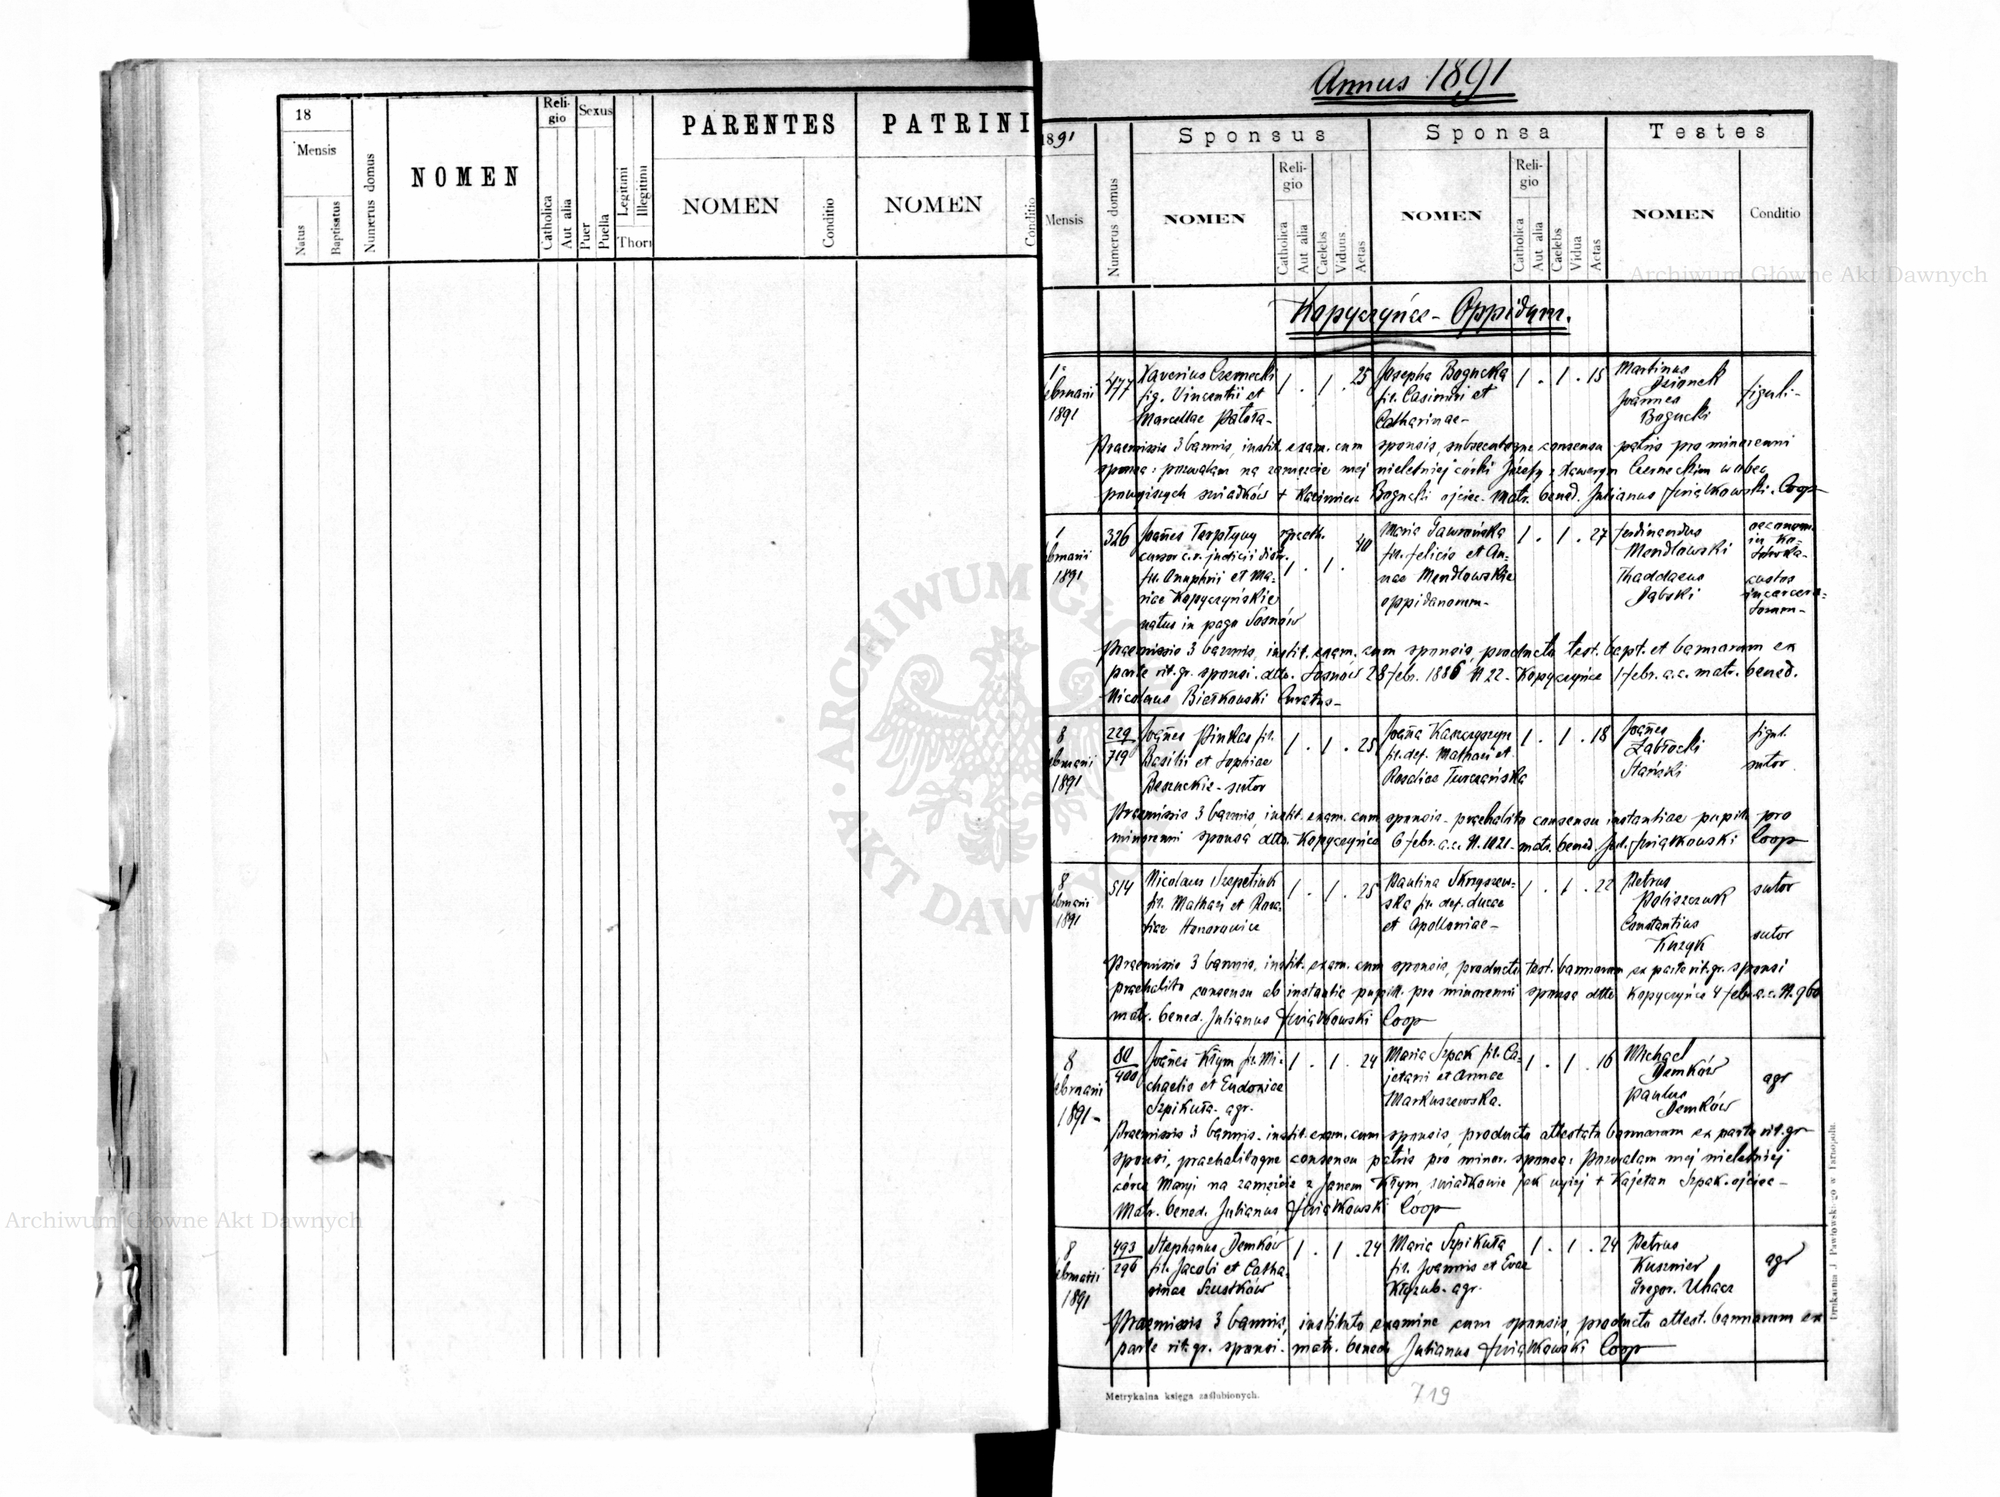 18
Mensis
Natus
Baptisatus
Numerus domus
NOMEN
Religio
Catholica
Aut alia
Sexus
Puer
Puella
Legitimi
Illegitimi
Thori
PARENTES
NOMEN
Conditio
PATRINI
NOMEN
Conditio
Annus 1891
1891
Mensis
Numerus domus
Sponsus
NOMEN
Religio
Catholica
Aut alia
Caelebs
Viduus.
Aetas
Sponsa
NOMEN
Religio
Catholica
Aut alia
Caelebs
Vidua
Aetas
Testes
NOMEN
Conditio
Kopyczyńce - Oppidum.
1
1891
477
Xaverius Czernecki
fig. Vincentii et
Marcellae
1 . 1 . 25
Josepha Bogucka
fil. Casimiri et
Catharinae -
1 . 1 . 15
Martinus
Joannes
Bogucki
figuli -
Praemissis 3 bannis, instit. exam. cum sponsis, subsecutoque consensu patris pro minorenni
sponsa: pozwalam na zamęście mej nieletniej córki Józefy z Xawerym Czerneckim wobec
powyższych świadków + Kazimierz Bogucki ojciec. Matr. bened. Julianus Kwiatkowski. Coop
1
1891
326
Joañes
cursor c. r. judicii
fil. Onuphrii et Ma-
riae Kopyczyńskie
natus in pago Sosnów
1 . 1 . 40
Maria Gawrońska
fil. Felicis et An-
nae Mendlowskie
oppidanorum -
1 . 1 . 27
Ferdinandus
Mendlowski
Thaddaeus
Dąbski
custos
incarcera-
torum -
Praemissis 3 bannis, instit. exam. cum sponsis, producto test. bapt. et bannorum ex
parte rit. gr. sponsi. dtto. Sosnów 28 febr. 1886 N 22 - Kopyczyńce 1 febr. a. c. matr. bened.
Nicolaus Bieńkowski Curatus -
8
1891
229
719
Joañes Pinkas fil.
Basilii et Sophiae
- sutor
1 . 1 . 25
Joaña Kaszczyszyn
fil. def. Mathaei et
Rosaliae Turczańska
1 . 1 . 18
Joañes
Żabłocki
Stański
figul.
sutor
Praemissis 3 bannis, instit. exam. cum sponsis - praehabito consensu instantiae pupill. pro
minorenni sponsa, dtto. Kopyczyńce 6 febr. a. c. N. 1021 - matr. bened. Jul. Kwiatkowski Coop
8
1891
514
Nicolaus Szepetiuk
fil. Mathaei et Rosa-
liae Honorowicz
1 . 1 . 25
Paulina Skrzyszew-
ska fil. def. Lucae
et Apolloniae -
1 . 1 . 22
Petrus
Poliszczuk
Constantius
Kuzyk
sutor
sutor
Praemissis 3 bannis, instit. exam. cum sponsis, producto test. bannorum ex parte rit. gr. sponsi
praehabito consensu ab instantia pupill. pro minorenni sponsa dtto Kopyczyńce 4 febr. a. c. N. 960
matr. bened. Julianus Kwiatkowski Coop
8
1891 -
80
400
Joañes Kłym fil. Mi-
chaelis et Eudoxiae
Szpikuła. agr.
1 . 1 . 24
Maria Szpak fil. Ca-
jetani et Annae
Markuszewska.
1 . 1 . 16
Michael
Demków
Paulus
Demków
agr
Praemissis 3 bannis - instit. exam. cum sponsis, producto attestato bannorum ex parte rit. gr
sponsi, praehabitoque consensu patris pro minor. sponsa: Pozwalam mej nieletniej
córce Maryi na zamęście z Janem Kłym, świadkowie jak wyżej + Kajetan Szpak. ojciec -
Matr. bened. Julianus Kwiatkowski Coop
8
1891
493
296
Stephanus Demków
fil. Jacobi et Catha-
rinae Szustków
1 . 1 . 24
Maria Szpikuła
fil. Joannis et Evae
agr.
1 . 1 . 24
Petrus
Kusznier
Gregor. Uhacz
agr
Praemissis 3 bannis, instituto examine cum sponsis, producto attest. bannorum ex
parte rit. gr. sponsi. matr. bened. Julianus Kwiatkowski Coop
Metrykalna księga zaślubionych.
719
Drukarnia J. Pawłowskiego w Tarnopolu.
Archiwum Główne Akt Dawnych
Archiwum Główne Akt Dawnych
ARCHIWUM GŁÓWNE AKT DAWNYCH